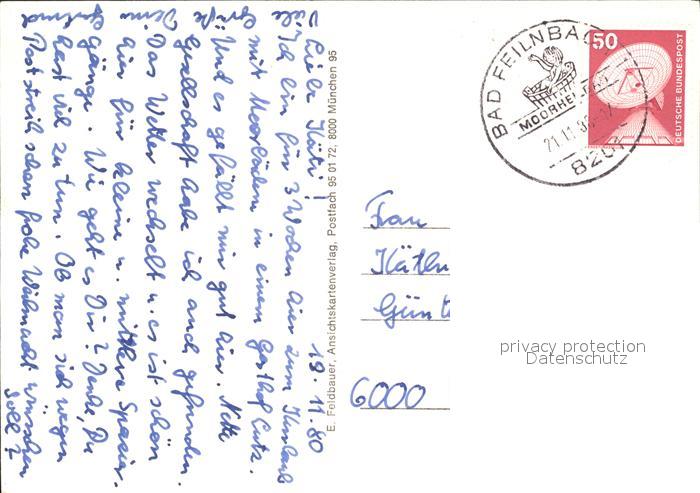 19.11.80
Liebe Käthi!
Ich bin für 3 Wochen hier zum Kurlaub
mit Moorbäder in einem Gasthof Lutz.
Und es gefällt mir gut hier. Nette
Gesellschaft habe ich auch gefunden.
Das Wetter wechselt u. es ist schön
hier für kleine u. mittlere Spazier-
gänge. Wie geht es Dir? Denke, Du
hast viel zu tun. Ob man sich wegen
Poststreik schon frohe Weihnacht wünschen
soll?
Viele
Grüße
Deine
E. Feldbauer, Ansichtskartenverlag, Postfach 95 01 72, 8000 München 95
BAD FEILNBACH
MOORHEILBAD
21.11.80-17
8201
50
DEUTSCHE BUNDESPOST
Frau
Käthe
Günt
6000
privacy protection
Datenschutz